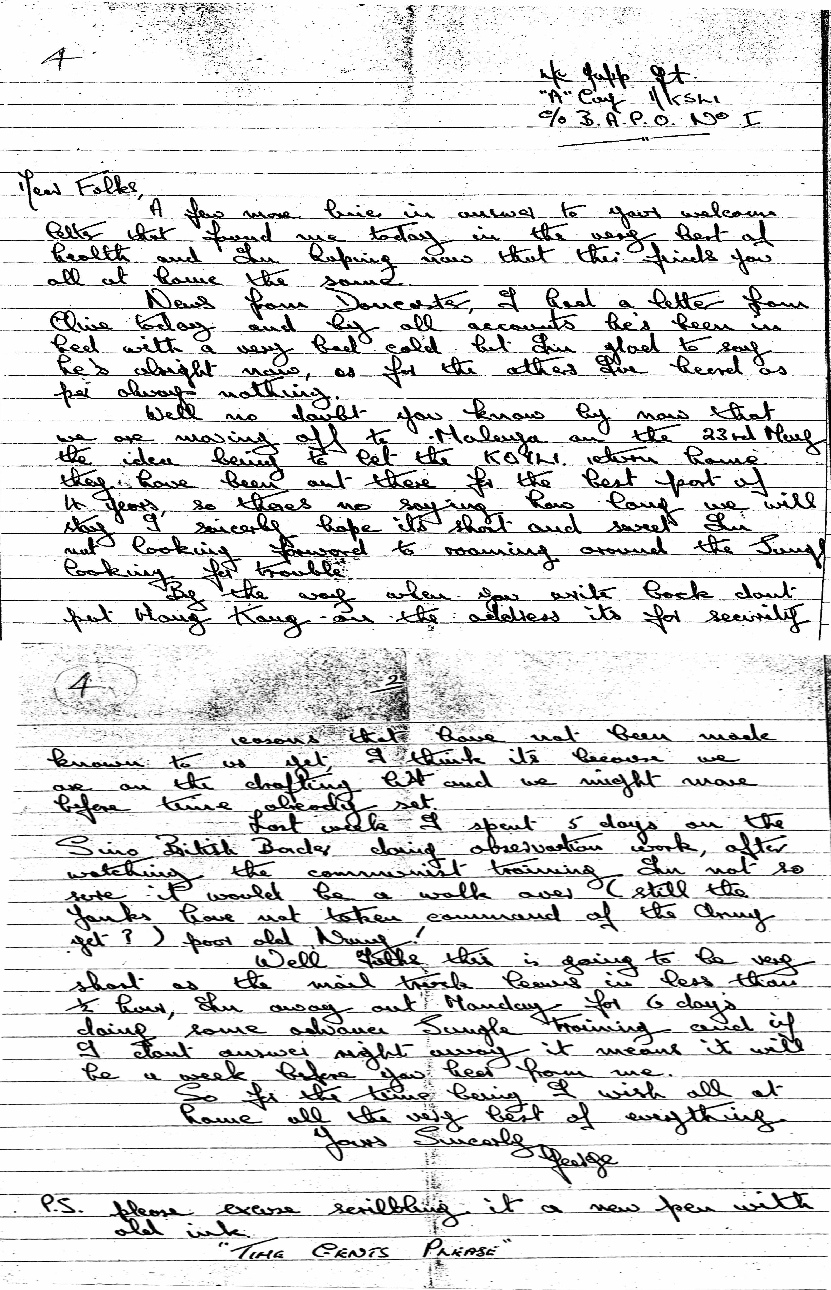 4
L/c Jupp Gt
"A" Coy 1/KSLI
c/o B.A.P.O. No I
Dear Folks,
A few more lines in answer to your welcome
letter that found me today in the very best of
health and I'm hoping now that this finds you
all at home the same.
News from Doncaster, I had a letter from
Clive today and by all accounts he's been in
bed with a very bad cold but I'm glad to say
he's alright now, as for the others I've heard as
per always nothing.
Well no doubt you know by now that
we are moving off to Malaya on the 23rd May
the idea being to let the KOYLI. return home
they have been out there for the best part of
4 years, so theres no saying how long we will
stay I sincerly hope its short and sweet I'm
not looking forward to roaming around the Jungl
looking for trouble.
By the way when you write back dont
put Hong Kong on the address its for security
4
2
reasons that have not been made
known to us yet, I think its because we
are on the drafting list and we might move
before time already set.
Last week I spent 5 days on the
Sino British Border doing observation work, after
watching the communist training I'm not so
sure it would be a walk over (still the
Yanks have not taken command of the Army
yet?) poor old Navy!
Well Folks this is going to be very
short as the mail truck leaves in less than
½ hour, I'm away out Monday for 6 days
doing some advance Jungle training and if
I dont answer right away it means it will
be a week before you hear from me.
So for the time being I wish all at
home all the very best of everything.
Yours Sincerly
George
P.S. please excuse scribbling it a new pen with
old ink.
"TIME GENTS PLEASE"